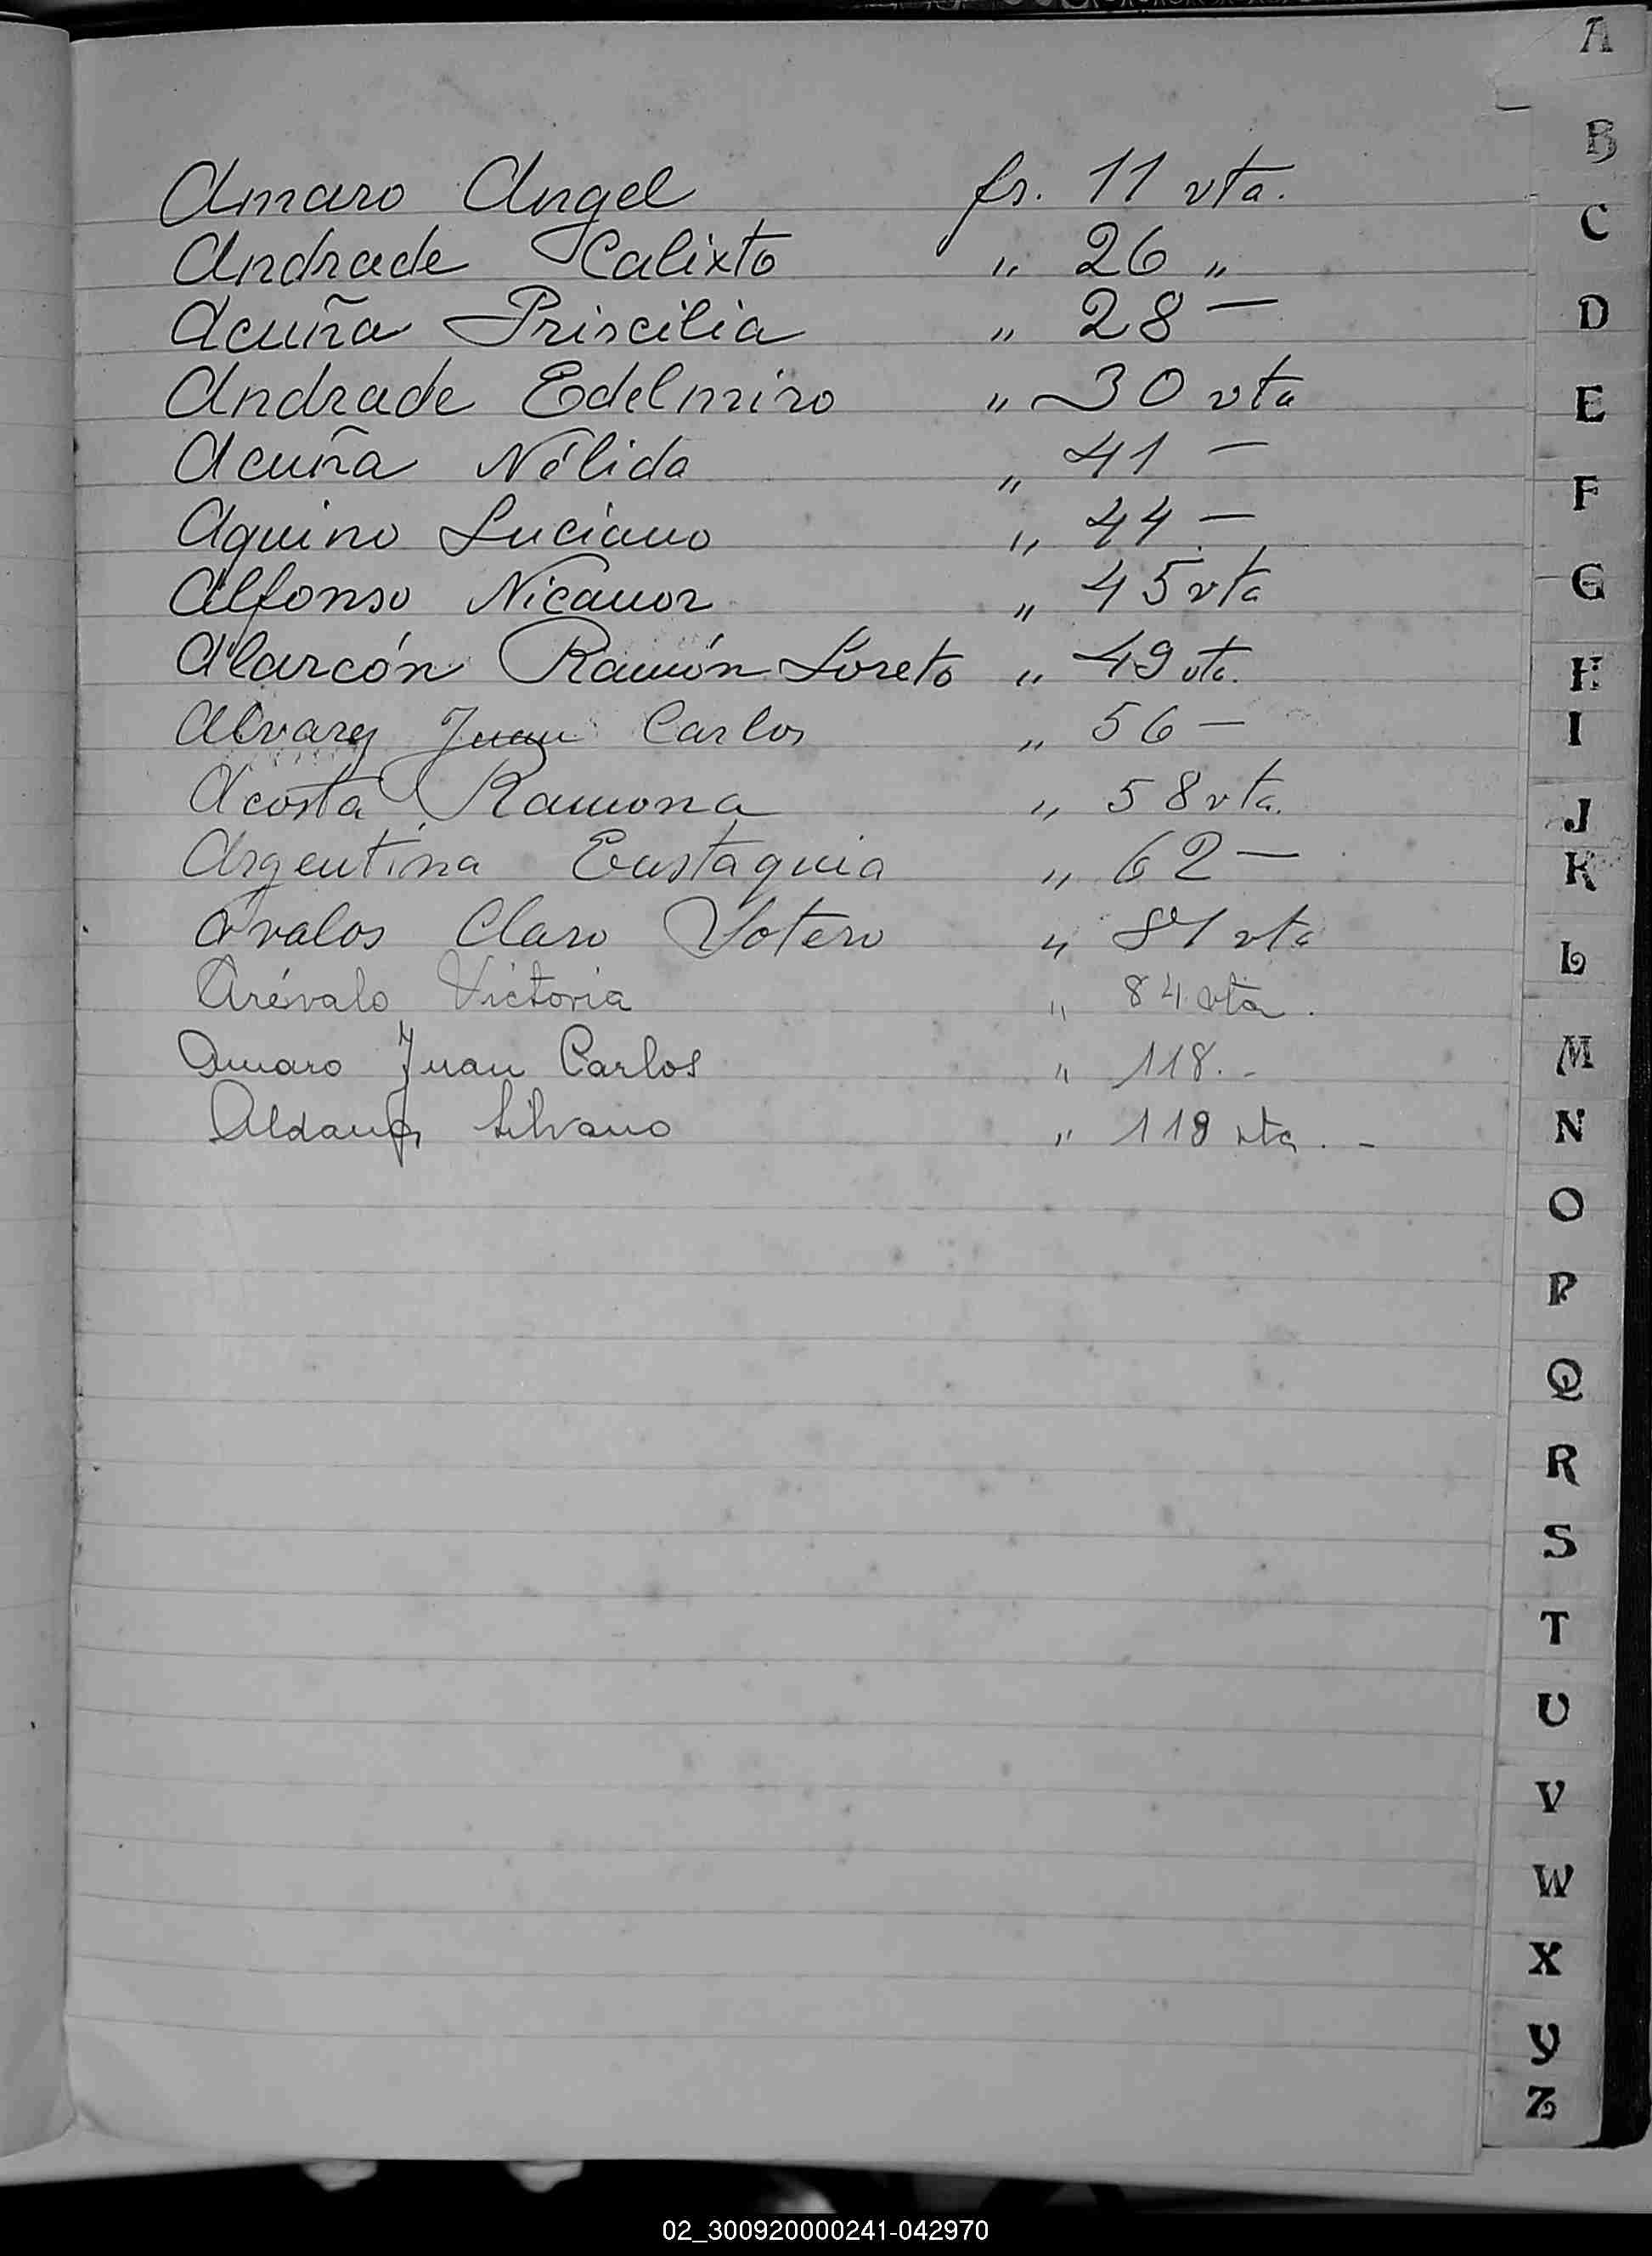 A
B
C
D
E
F
G
H
I
J
K
L
M
N
O
P
Q
R
S
T
U
V
W
X
Y
Z
Amaro Angel fs. 11 vta.
Andrade Calixto " 26 "
Acuña Priscilia " 28 —
Andrade Edelmiro " 30 vta
Acuña Nélida " 41 —
Aquino Luciano " 44 —
Alfonso Nicanor " 45 vta
Alarcón Ramón Loreto " 49 vta.
Alvarez Juan Carlos " 56 —
Acosta Ramona " 58 vta.
Argentina Eustaquia " 62 —
Avalos Claro Sotero " vta
Arévalo Victoria " 84 vta.
Amaro Juan Carlos " 118. -
Silvano " vta. -
02_300920000241-042970